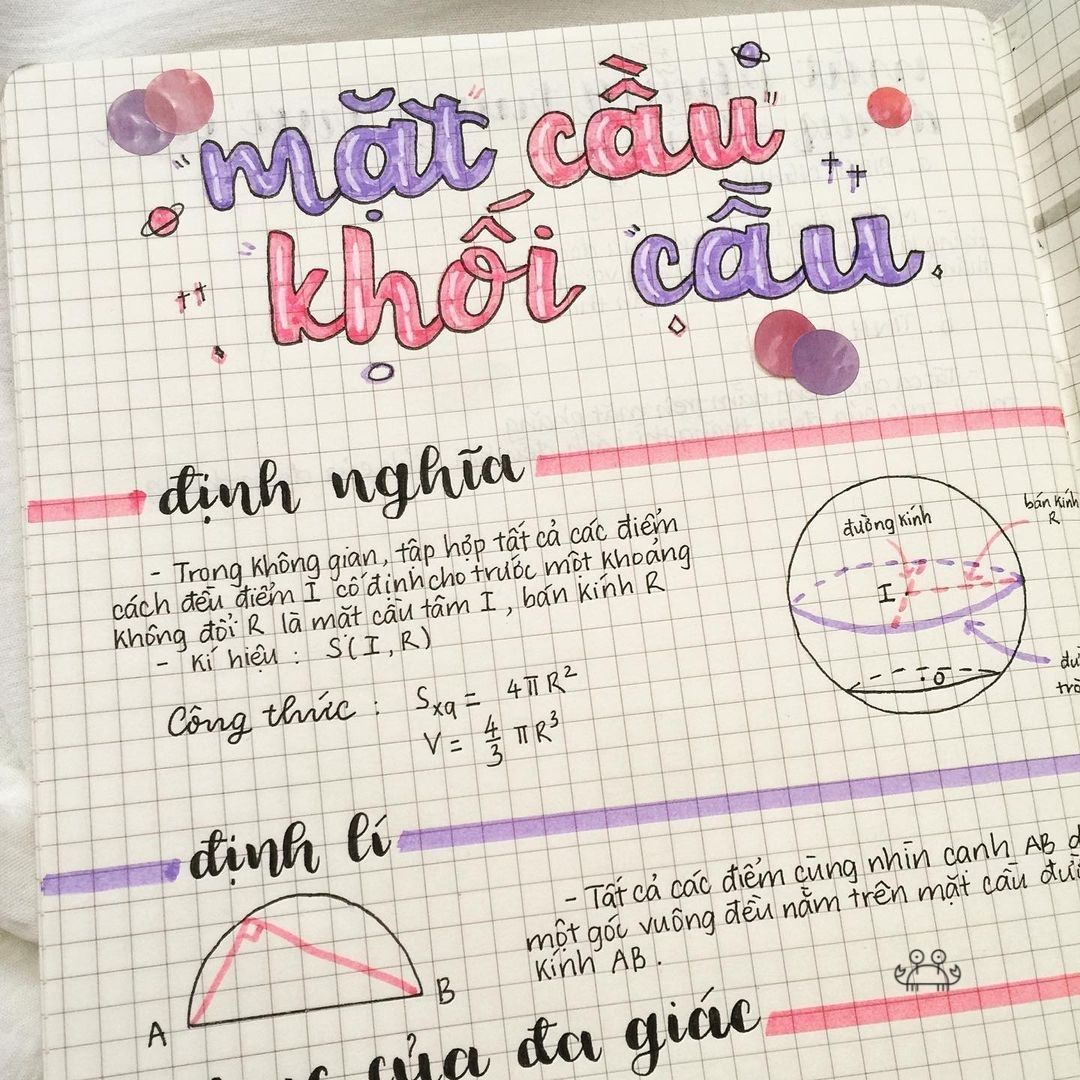 mặt cầu
khối cầu
định nghĩa
- Trong không gian, tập hợp tất cả các điểm
cách đều điểm I cố định cho trước một khoảng
không đổi R là mặt cầu tâm I, bán kính R
- Kí hiệu : S(I,R)
Công thức : Sxq = 4πR²
V = 4/3 πR³
đường kính
bán kính
R
I
O
định lí
- Tất cả các điểm cùng nhìn cạnh AB
một góc vuông đều nằm trên mặt cầu
kính AB.
A
B
của đa giác